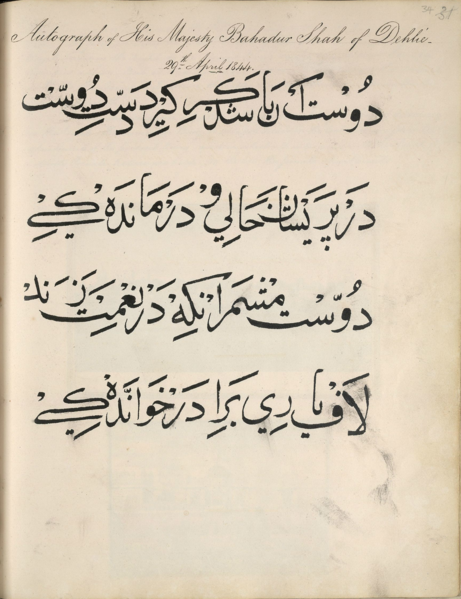 34 31
Autograph of His Majesty Bahadur Shah of Dehlie.
29th April 1844.
دوست آن باشد که گیرد دست دوست
در پریشان حالی و درماندگی
دوست مشمر آنکه در نعمت زند
لاف یاری برادر خواندگی